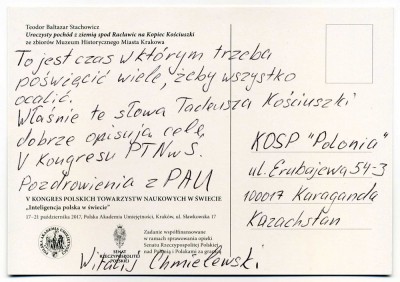 Teodor Baltazar Stachowicz
Uroczysty pochód z ziemią spod Racławic na Kopiec Kościuszki
ze zbiorów Muzeum Historycznego Miasta Krakowa
To jest czas w którym trzeba
poświęcić wiele, żeby wszystko
ocalić.
Właśnie te słowa Tadeusza Kościuszki
dobrze opisują celę
V Kongresu PTNwŚ.
Pozdrowienia z PAU
KOSP "Polonia"
ul. Erubajewa 54-3
100017 Karaganda
Kazachstan
V KONGRES POLSKICH TOWARZYSTW NAUKOWYCH W ŚWIECIE
„Inteligencja polska w świecie”
17-21 października 2017, Polska Akademia Umiejętności, Kraków, ul. Sławkowska 17
SENAT
RZECZYPOSPOLITEJ
POLSKIEJ
Zadanie współfinansowane
w ramach sprawowania opieki
Senatu Rzeczypospolitej Polskiej
nad Polonią i Polakami za granicą
Witalij Chmielewski